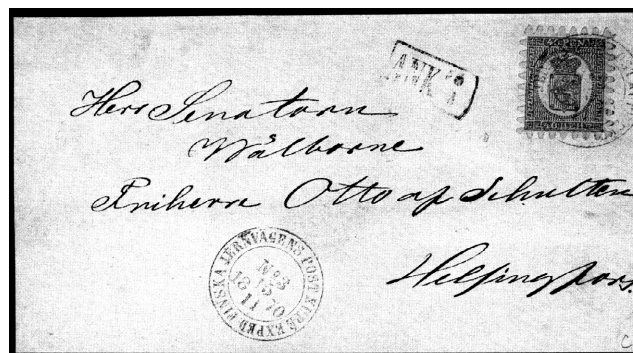 ANK
40 PEN.
Herr Senatorn
Wälborne
Friherre Otto af Schulten
Helsingfors.
FINSKA JERNVÄGENS POST KUPÉ EXPED
No 3
15
18 11 70
C